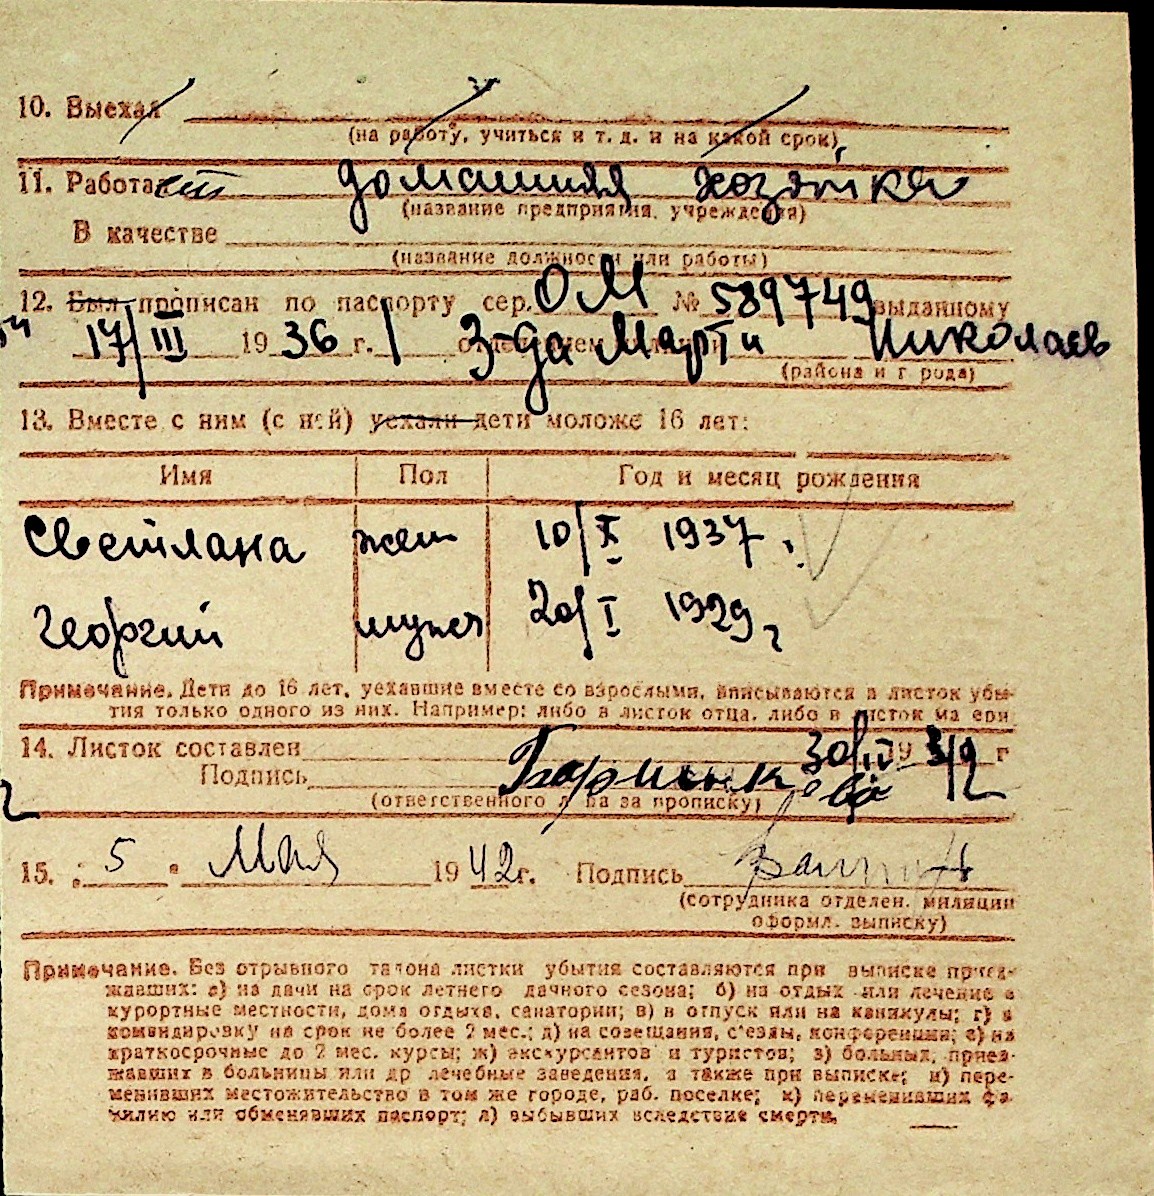 10. Выехал
(на работу, учиться и т. д. и на какой срок)
11. Работает домашняя хозяйка
(название предприятия, учреждения)
В качестве
(название должности или работы)
12. Был прописан по паспорту сер. ОМ № 589749 выданному
17/III 1936 г. 3-да Марти Николаев
(района и г рода)
13. Вместе с ним (с ней) уехали дети моложе 16 лет:
Имя Пол Год и месяц рождения
Светлана жен 10/X 1937.
Георгий муж 20/I 1929
Примечание. Дети до 16 лет, уехавшие вместе со взрослыми, вписываются в листок убы-
тия только одного из них. Например: либо в листок отца, либо в листок ма ери
14. Листок составлен 30/IV 42 г
Подпись
(ответственного л ца за прописку)
15. „5" Мая 1942г. Подпись
(сотрудника отделен. милиции
оформл. выписку)
Примечание. Без отрывного талона листки убытия составляются при выписке приез-
жавших: а) на дачи на срок летнего дачного сезона; б) на отдых или лечение в
курортные местности, дома отдыха, санатории; в) в отпуск или на каникулы; г) в
командировку на срок не более 2 мес.; д) на совещания, с'езды, конференции; е) на
краткосрочные до 2 мес. курсы; ж) экскурсантов и туристов; з) больных, приез-
жавших в больницы или др лечебные заведения, а также при выписке; и) пере-
менивших местожительство в том же городе, раб. поселке; к) переменивших фа-
милию или обменявших паспорт; л) выбывших вследствие смерти.